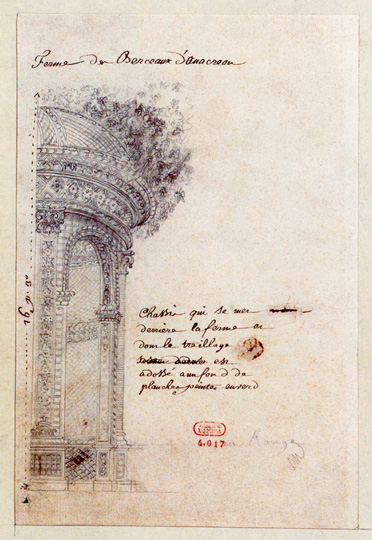 Ferme du Berceaux d'anacreon
Chassi qui se met
derriere la ferme et
dont le traillage
est
adossé a un fond de
planches peintes en verd
4.017